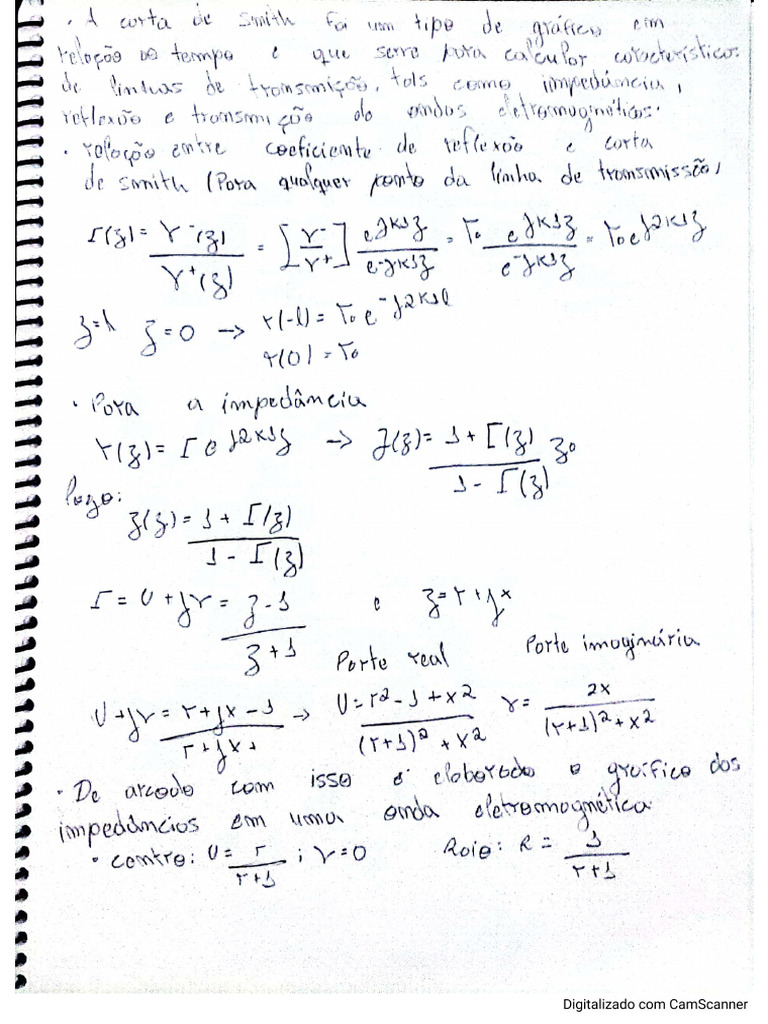 · A carta de Smith foi um tipo de gráfico em
relação ao tempo e que serve para calcular características
de linhas de transmição, tals como impedância,
reflexão e transmição de ondas eletromagnéticas.
· relação entre coeficiente de reflexão e carta
de smith (Para qualquer ponto da linha de transmissão)
Γ(z) = V⁻(z) / V⁺(z) = [V⁻/V⁺] e^{jk1z} / e^{-jk1z} = Γ₀ e^{jk1z} / e^{-jk1z} = Γ₀e^{j2k1z}
z=l z=0 → Γ(-l) = Γ₀e^{-j2k1l}
Γ(0) = Γ₀
· Para a impedância
Γ(z) = Γ e^{j2k1z} → Z(z) = 1 + Γ(z) / 1 - Γ(z) z₀
logo:
z(z) = 1 + Γ(z) / 1 - Γ(z)
Γ = U + jV = z - 1 / z + 1 e z = r + jx
Parte real Parte imaginária
U + jV = r + jx - 1 / r + jx + → U = r² - 1 + x² / (r+1)² + x² V = 2x / (r+1)² + x²
· De arcodo com isso é elaborado o gráfico dos
impedâncias em uma onda eletromagnética.
· centro: U = r / r+1 ; V=0 Raio: R = 1 / r+1
Digitalizado com CamScanner